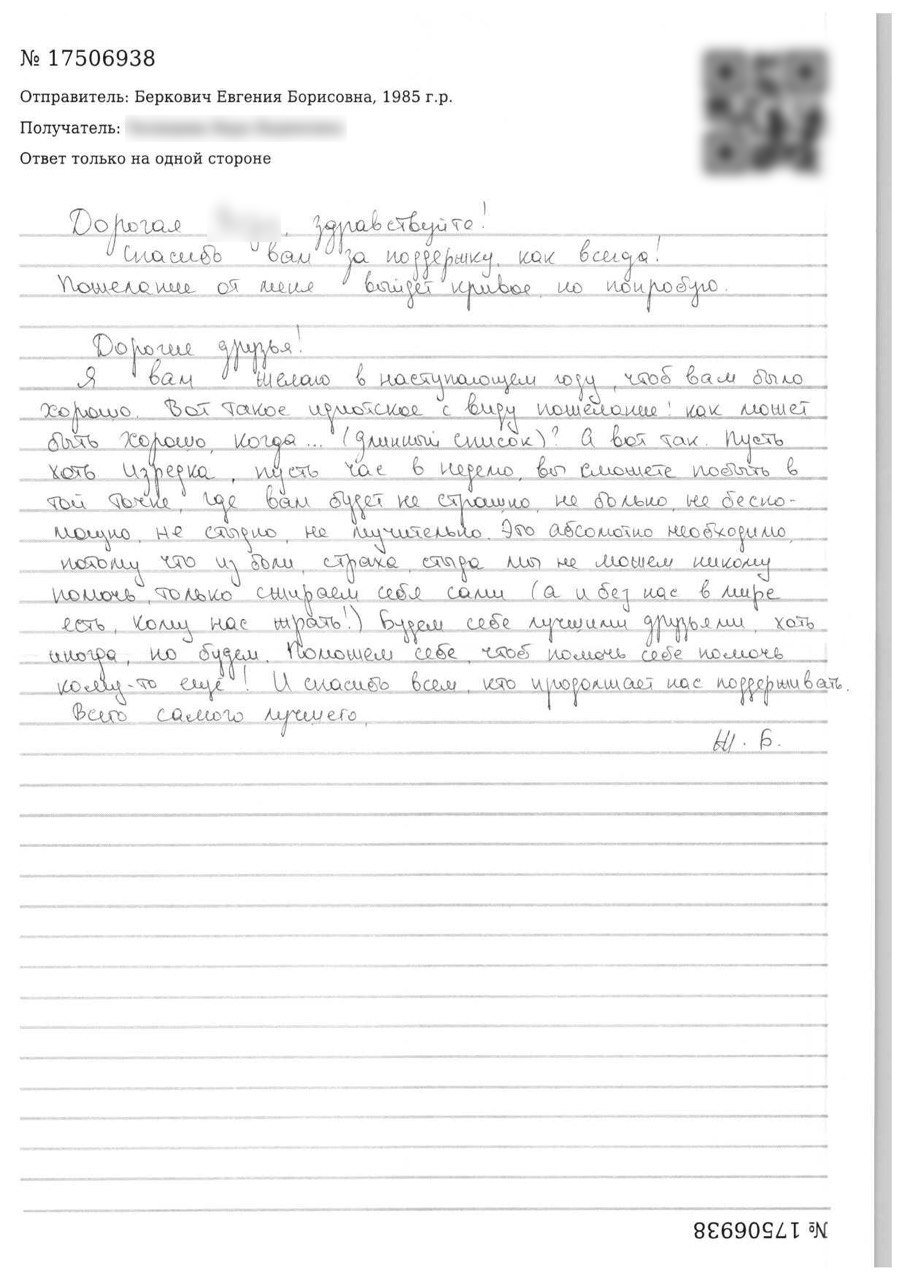 № 17506938
Отправитель: Беркович Евгения Борисовна, 1985 г.р.
Получатель:
Ответ только на одной стороне
Дорогая , здравствуйте!
Спасибо вам за поддержку, как всегда!
Пожелание от меня выйдет кривое, но попробую.
Дорогие друзья!
Я вам желаю в наступающем году, чтоб вам было
хорошо. Вот такое идиотское с виду пожелание: как может
быть хорошо, когда... (длинный список)? А вот так. Пусть
хоть изредка, пусть час в неделю, вы сможете побыть в
той точке, где вам будет не страшно, не больно, не беспо-
мощно, не стыдно, не мучительно. Это абсолютно необходимо,
потому что из боли, страха, стыда мы не можем никому
помочь, только сжираем себя сами (а и без нас в мире
есть, кому нас жрать!) Будем себе лучшими друзьями, хоть
иногда, но будем. Поможем себе, чтоб помочь себе помочь
кому-то ещё! И спасибо всем, кто продолжает нас поддерживать.
Всего самого лучшего,
Ж. Б.
№ 17506938